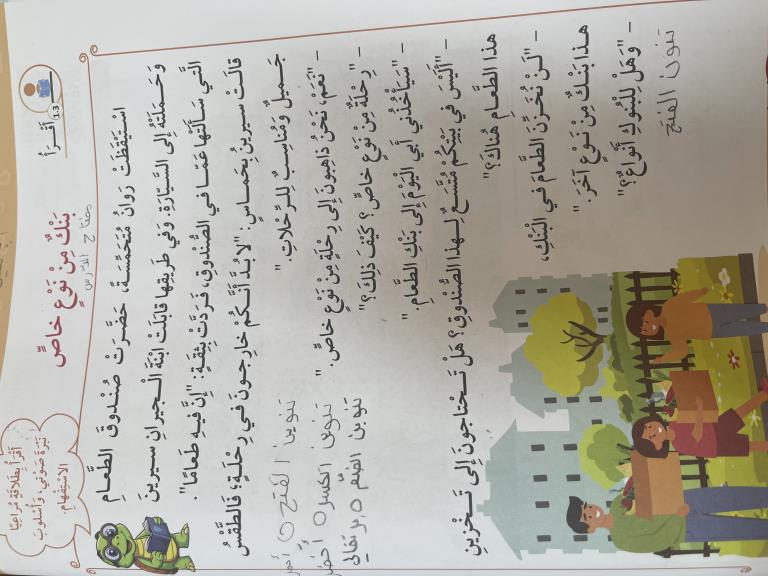 أَقْرَأُ
1-3
أَقْرَأُ بِطَلاقَةٍ مُراعِيًا
نَبْرَةَ صَوْتي، وَأُسْلوبَ
الِاسْتِفْهامِ.
بَنْكٌ مِنْ نَوْعٍ خاصٍّ
مفتاح الدرس
اسْتَيْقَظَتْ رَوانُ مُتَحَمِّسَةً، حَضَّرَتْ صُنْدوقَ الطَّعامِ
وَحَمَلَتْهُ إِلى السَّيّارَةِ. وَفي طَريقِها قابَلَتْ ابْنَةَ الْجيرانِ سيرينَ
الَّتي سَأَلَتْها عَمّا في الصُّنْدوقِ، فَرَدَّتْ بِثِقَةٍ: "إِنَّ فيهِ طَعامًا".
قالَتْ سيرينُ بِحَماسٍ: "لا بُدَّ أَنَّكُمْ خارِجونَ في رِحْلَةٍ؛ فَالطَّقْسُ
جَميلٌ وَمُناسِبٌ لِلرِّحْلاتِ."
– "نَعَمْ، نَحْنُ ذاهِبونَ إِلى رِحْلَةٍ مِنْ نَوْعٍ خاصٍّ."
– "رِحْلَةٌ مِنْ نَوْعٍ خاصٍّ؟ كَيْفَ ذلِكَ؟"
– "سَيَأْخُذُني أَبي الْيَوْمَ إِلى بَنْكِ الطَّعامِ."
– "أَلَيْسَ في بَيْتِكُمْ مُتَّسَعٌ لِهذا الصُّنْدوقِ؟ هَلْ تَحْتاجونَ إِلى تَخْزينِ
هذا الطَّعامِ هُناكَ؟"
– "لَنْ نُخَزِّنَ الطَّعامَ في الْبَنْكِ،
هذا بَنْكٌ مِنْ نَوْعٍ آخَرَ."
– "وَهَلْ لِلْبُنوكِ أَنْواعٌ؟"
تنوين الفتح
تنوين الفتح أحمر
تنوين الكسر أخضر
تنوين الضم برتقالي